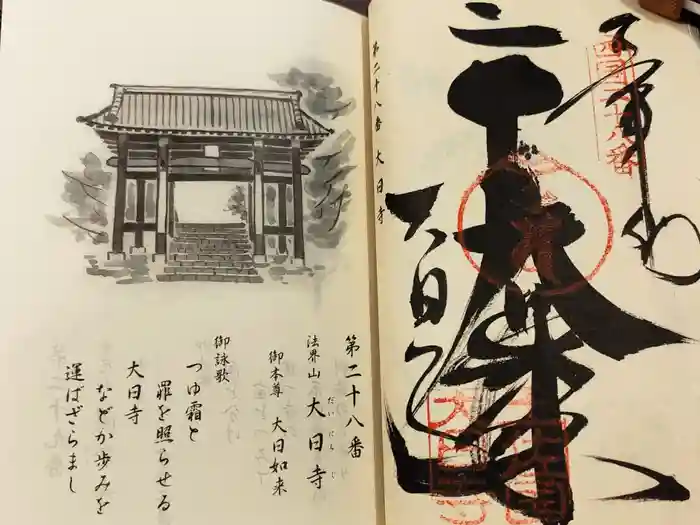 奉納
四国第二十八番
大日如来
大日寺
第二十八番 大日寺
第二十八番
法界山 大日寺
だいにちじ
御本尊 大日如来
御詠歌
つゆ霜と
罪を照らせる
大日寺
などか歩みを
運ばざらまし